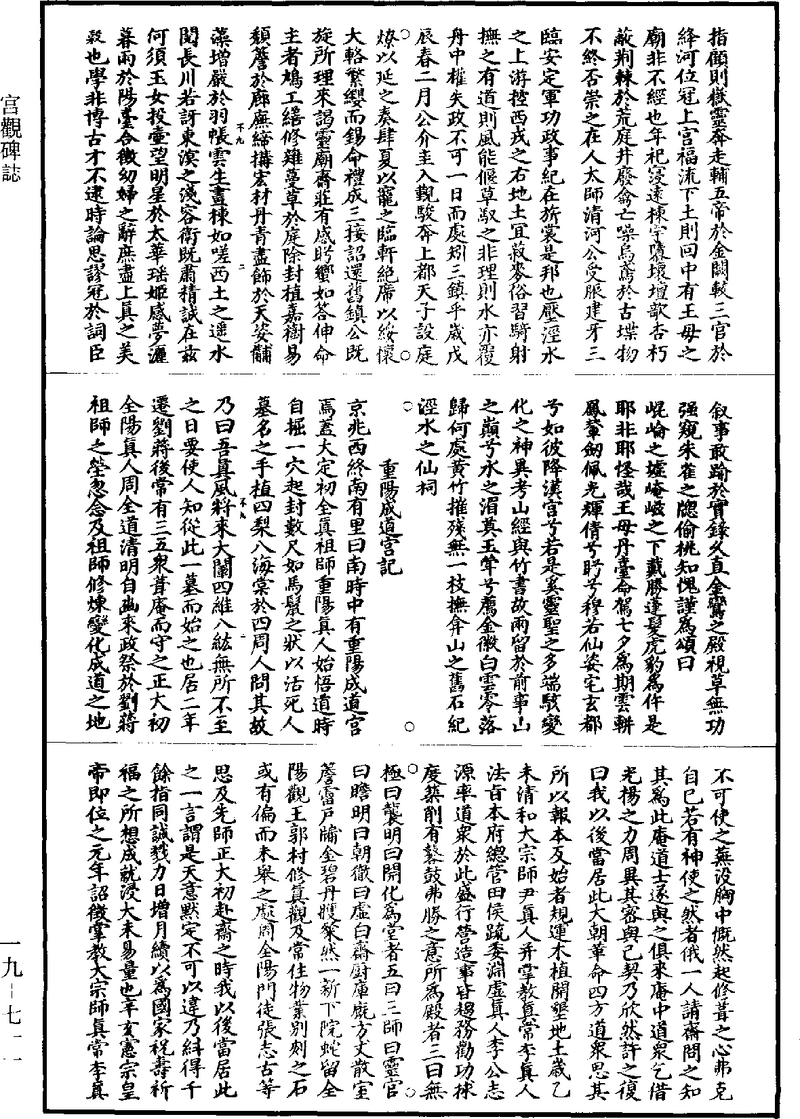 宮觀碑誌
指顧則嶽靈奔走輔五帝於金闕較三官於
絳河位冠上宮福流下土則回中有王母之
廟非不經也年祀寖遠棟宇隳壞壇歌杏朽
蔽荆棘於荒庭井廢禽亡噪鳥鳶於古堞物
不終否崇之在人太師清河公受脤建牙三
臨安定軍功政事紀在旂裳是邦也壓涇水
之上游控西戎之右地土宜菽麥俗習騎射
撫之有道則風能偃草馭之非理則水亦覆
舟中權失政不可一日而處矧三鎮乎歲戊
辰春二月公介主入覲駿奔上都天子設庭
燎以延之奏肆夏以寵之臨軒絕席以綏懷
大輅繁纓而錫命禮成三接詔還舊鎮公既
旋所理來謁靈廟齋莊有感肹蠁如答伸命
主者鳩工繕修薙蔓草於庭除封植嘉樹易
頹簷於廊廡締搆宏材丹青盡飾於天姿黼
藻增嚴於羽帳雲生畫棟如嗟西土之遥水
閱長川若訝東溟之淺容衛既肅精誠在兹
何須玉女投壺望明星於太華瑶姬感夢灑
暮雨於陽臺合徵幼婦之辭庶盡上真之美
穀也學非博古才不逮時論思謬冠於詞臣
叙事敢踰於實錄久直金鑾之殿視草無功
强窺朱雀之牕偷桃知愧謹爲頌曰
崐崘之墟崦嵫之下戴勝蓬髮虎豹爲仵是
耶非耶怪哉王母丹臺命駕七夕爲期雲輧
鳳輦劒佩光輝倩兮盻兮穆若仙姿宅玄都
兮如彼降漢宮兮若是奚靈聖之多端駭變
化之神異考山經與竹書故兩留於前事山
之巔兮水之湄奠玉斝兮薦金徽白雲零落
歸何處黄竹摧殘無一枝撫弇山之舊石紀
涇水之仙祠
重陽成道宮記
京兆西終南有里曰南時中有重陽成道宮
焉蓋大定初全真祖師重陽真人始悟道時
自掘一穴起封數尺如馬鬣之狀以活死人
墓名之手植四梨八海棠於四周人問其故
乃曰吾真風將來大闡四維八紘無所不至
之日要使人知從此一墓而始之也居二年
遷劉蔣後常有三五衆葺庵而守之正大初
全陽真人周全道清明自幽來政祭於劉蔣
祖師之塋忽念及祖師修煉變化成道之地
不可使之蕪没胸中慨然起修葺之心弗克
自已若有神使之然者俄一人請齋問之知
其爲此庵道士遂與之俱來庵中道衆乞借
光楊之力周異其容與己契乃欣然許之復
曰我以後當居此大朝革命四方道衆思其
所以報本反始者規運木植開墾地土歲乙
未清和大宗師尹真人并掌教真常李真人
法旨本府總管田侯䟽委淵虚真人李公志
源率道衆於此盛行營造事皆趨務勸功捄
度築削有鼛鼓弗勝之意所爲殿者三曰無
極曰襲明曰開化爲堂者五曰三師曰靈官
曰瞻明曰朝徹曰虚白齋厨庫廐方丈散室
簷霤戸牖金碧丹雘粲然一新下院蛇留全
陽觀王郭村修真觀及常住物業别刻之石
或有偏而未舉之處周全陽門徒張志古等
思及先師正大初赴齋之時我以後當居此
之一言謂是天意默定不可以違乃斜得千
餘指同誠戮力日增月續以爲國家祝壽祈
福之所想成就浸大未易量也辛亥憲宗皇
帝即位之元年詔徵掌教大宗師真常李真
一九-七一一